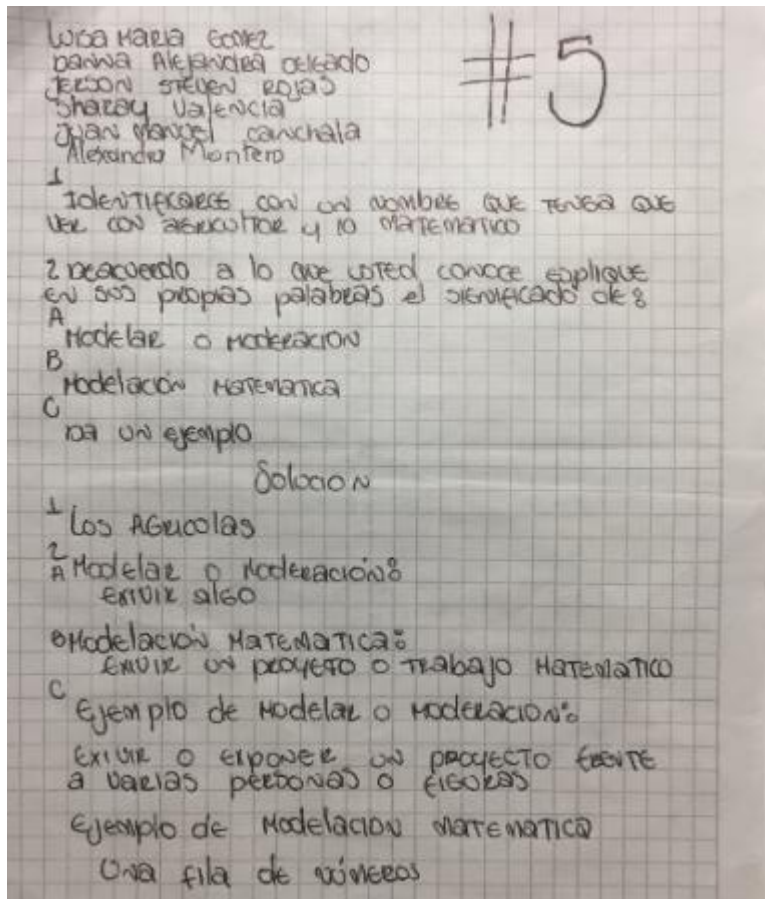 Luisa Maria Gomez
Danna Alejandra Delgado
Jerson Steven Rojas
Sharay Valencia
Juan Manuel Canchala
Alexander Montero
#5
1
Identificarce con un nombre que tenga que
ver con agricultor y lo matematico
2 Deacuerdo a lo que usted conoce explique
en sus propias palabras el significado de:
A
Modelar o moderacion
B
Modelación Matematica
C
Da un ejemplo
Solucion
1 Los Agricolas
2
A Modelar o Moderación:
Exivir algo
B Modelación Matematica:
Exivir un proyecto o trabajo Matematico
C
Ejemplo de Modelar o Moderacion:
Exivir o exponer un proyecto frente
a varias personas o figuras
Ejemplo de Modelacion matematica
Una fila de números